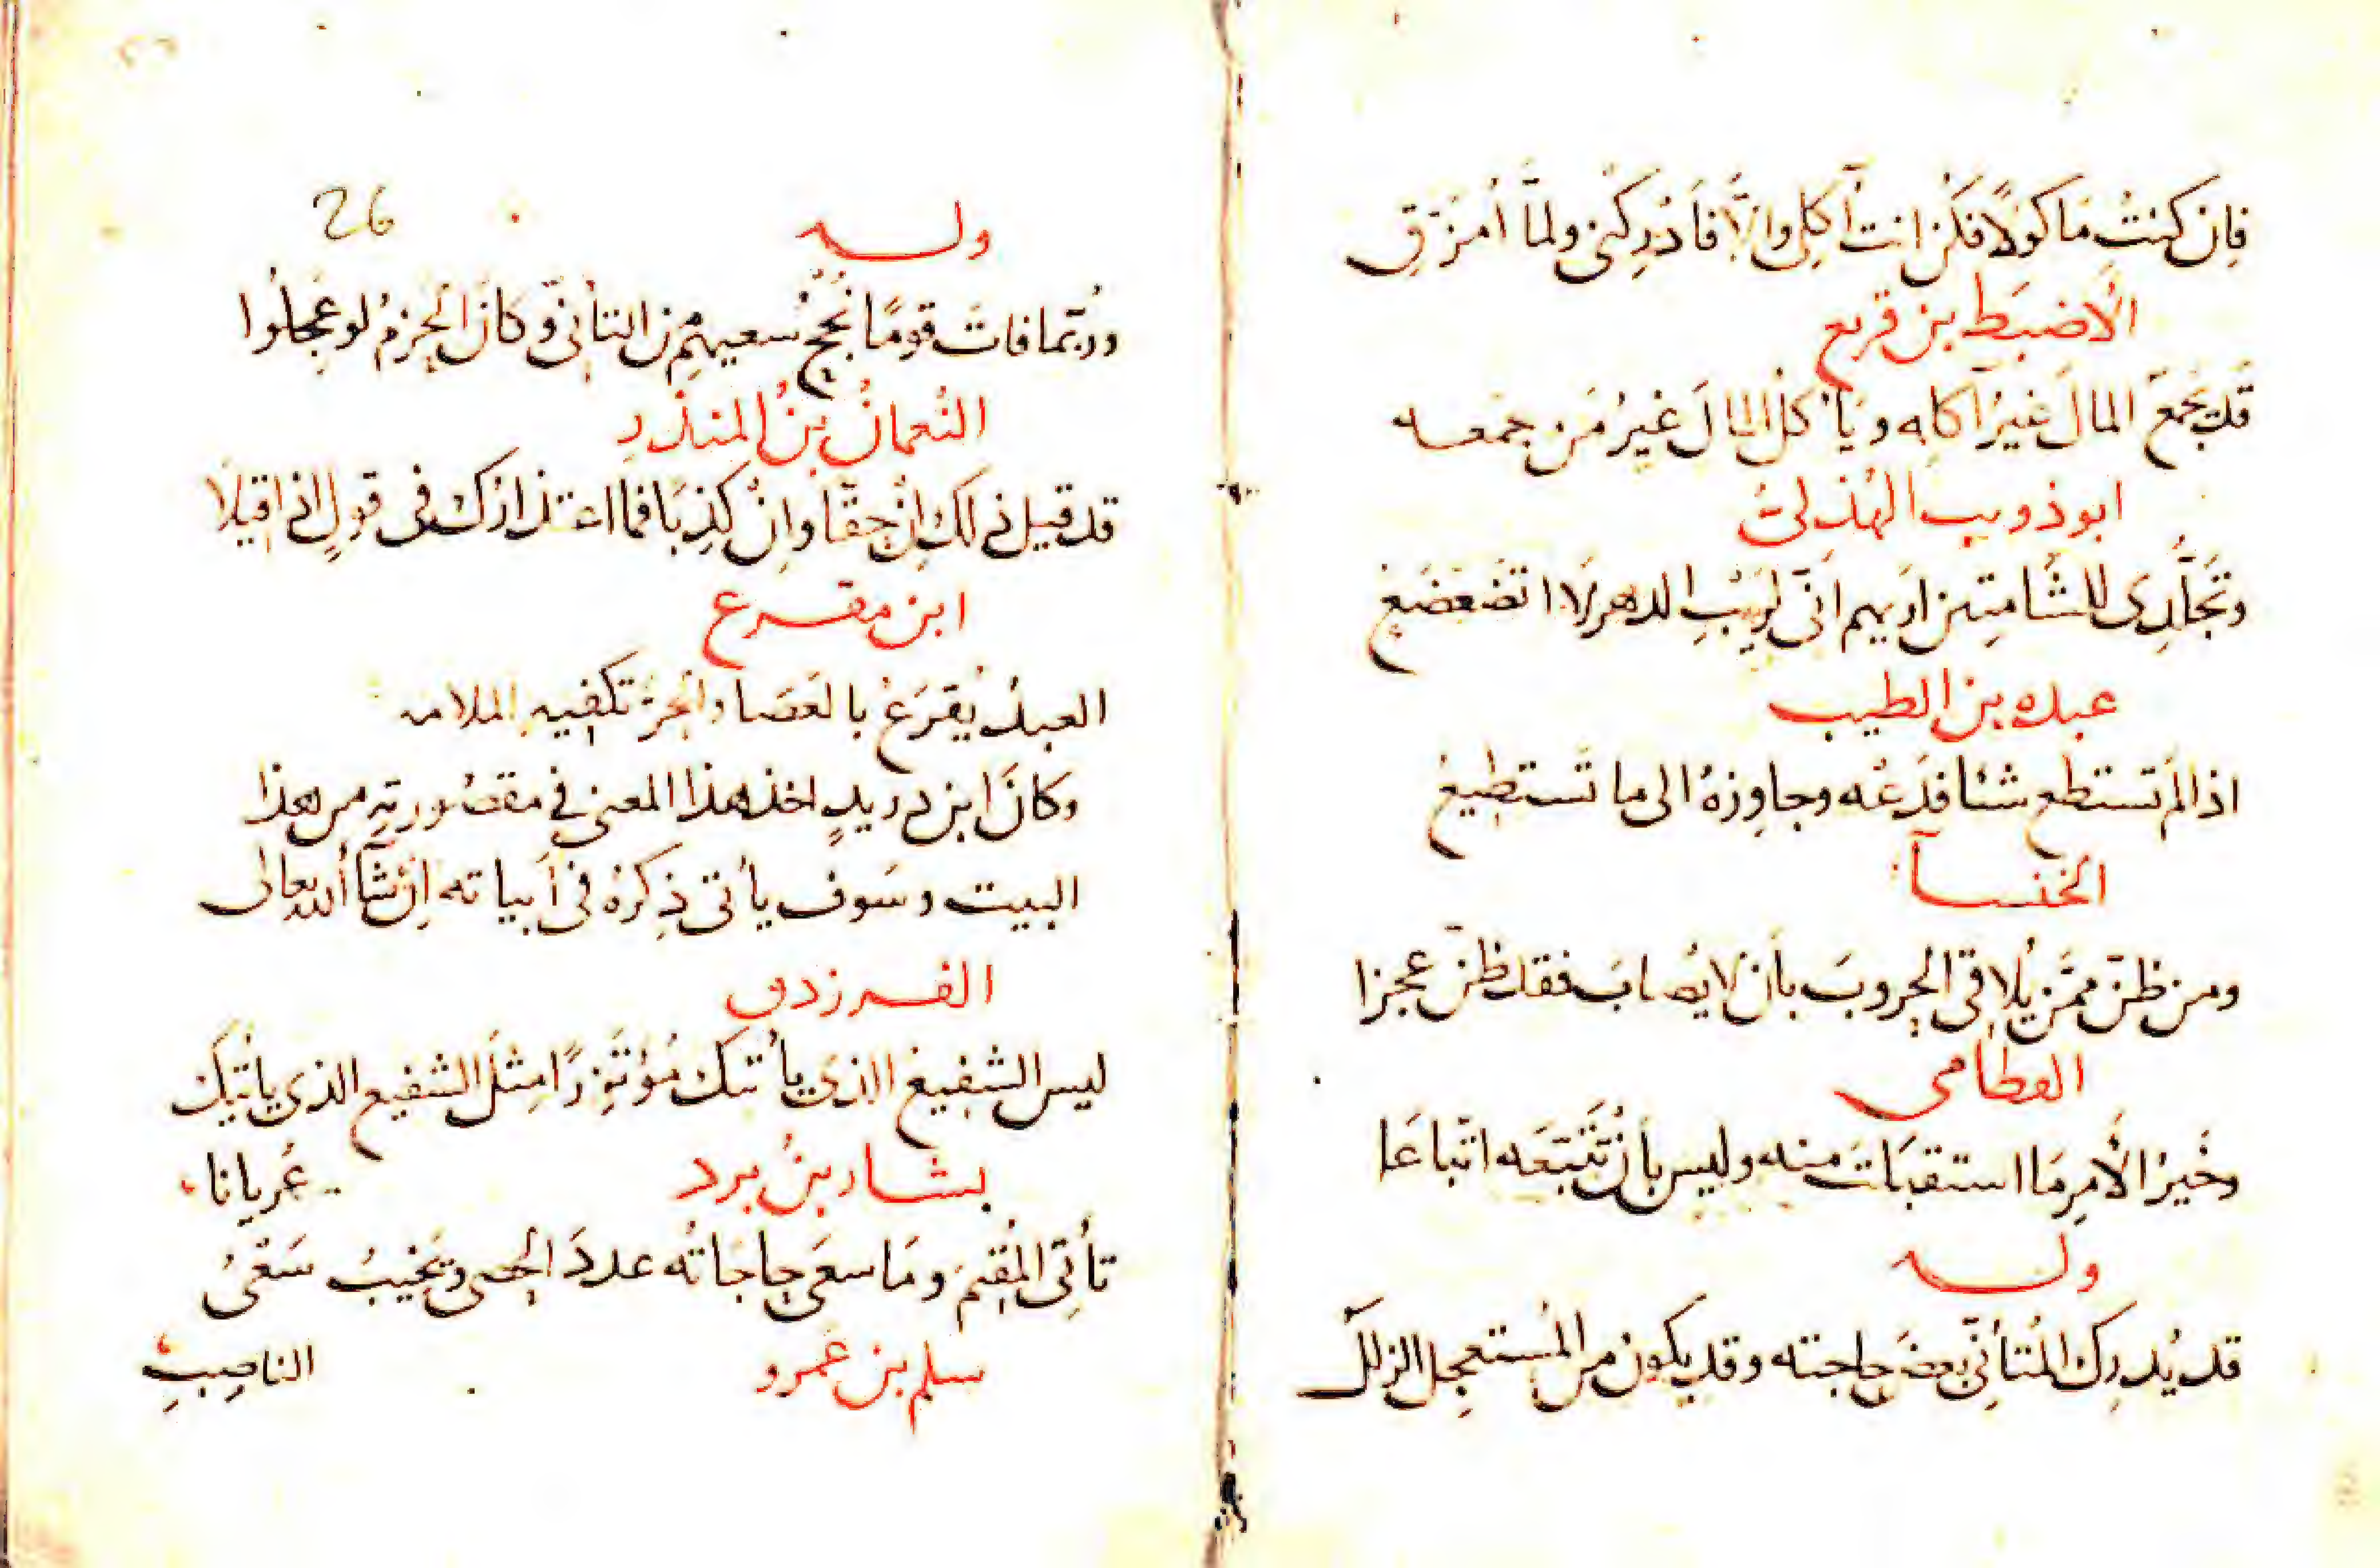 فان كنتُ مَاكولاً فكُن انت آكلى والّا فاَدْرِكْنى ولمّا اُمزَّقِ
الأضبَط بن قريع
قَد يَجمَع المالَ غيرُ آكله ويَأكلُ المالَ غيرُ مَن جمَعه
ابو ذويب الهُذلىّ
وتَجَلُّدِى للشّامتِين اُريهم اَنّى لرَيْبِ الدهر لا اتضَعضَع
عبده بن الطيب
اذا لم تستطع شئا فدَعْه وجاوزهُ الى ما تَستطيعُ
الخنسآ
ومن ظنّ ممّن يُلاقى الحروبَ بأن لا يُصابَ فقد ظنّ عجزا
القطامى
وخَيرُ الأمرِ مَا استقبَلتَ منه وليس بأن تَتَبَّعَه اتّباعَا
وله
قد يُدرِك المُتأنّى بعضَ حاجته وقد يكونُ من المُستعجِل الزلَلُ
26
وله
ورُبّما فاتَ قومًا نُجْحُ سعيهِم من التأنّى وكانَ الحزمُ لو عَجِلُوا
النُعمانُ بنُ المنذر
قد قيل ذلك اِنْ حقّا واِنْ كذِبًا فما اعتذارُك فى قولٍ اذا قيلا
ابن مفرع
العبدُ يُقرَعُ بالعَصَا والحُرّ تكفيه الملامه
وكانَ ابن دريدٍ اخذ هذا المعنى فى مقصُورتِه من هذا
البيت وسَوف يأتى ذِكرُهُ فى اَبياته اِنْ شآ الله تعالى
الفرزدق
ليس الشفيعُ الذى يأتيك مُؤتَزِرًا مِثلَ الشفيع الذى يأتيك
عُريانا
بشار بنُ برد
تأتِى المُقيمَ ومَا سعَى حاجَاتُه عددَ الحصى ويَخيبُ سَعْىُ
الناصِبِ
سلم بن عَمرو